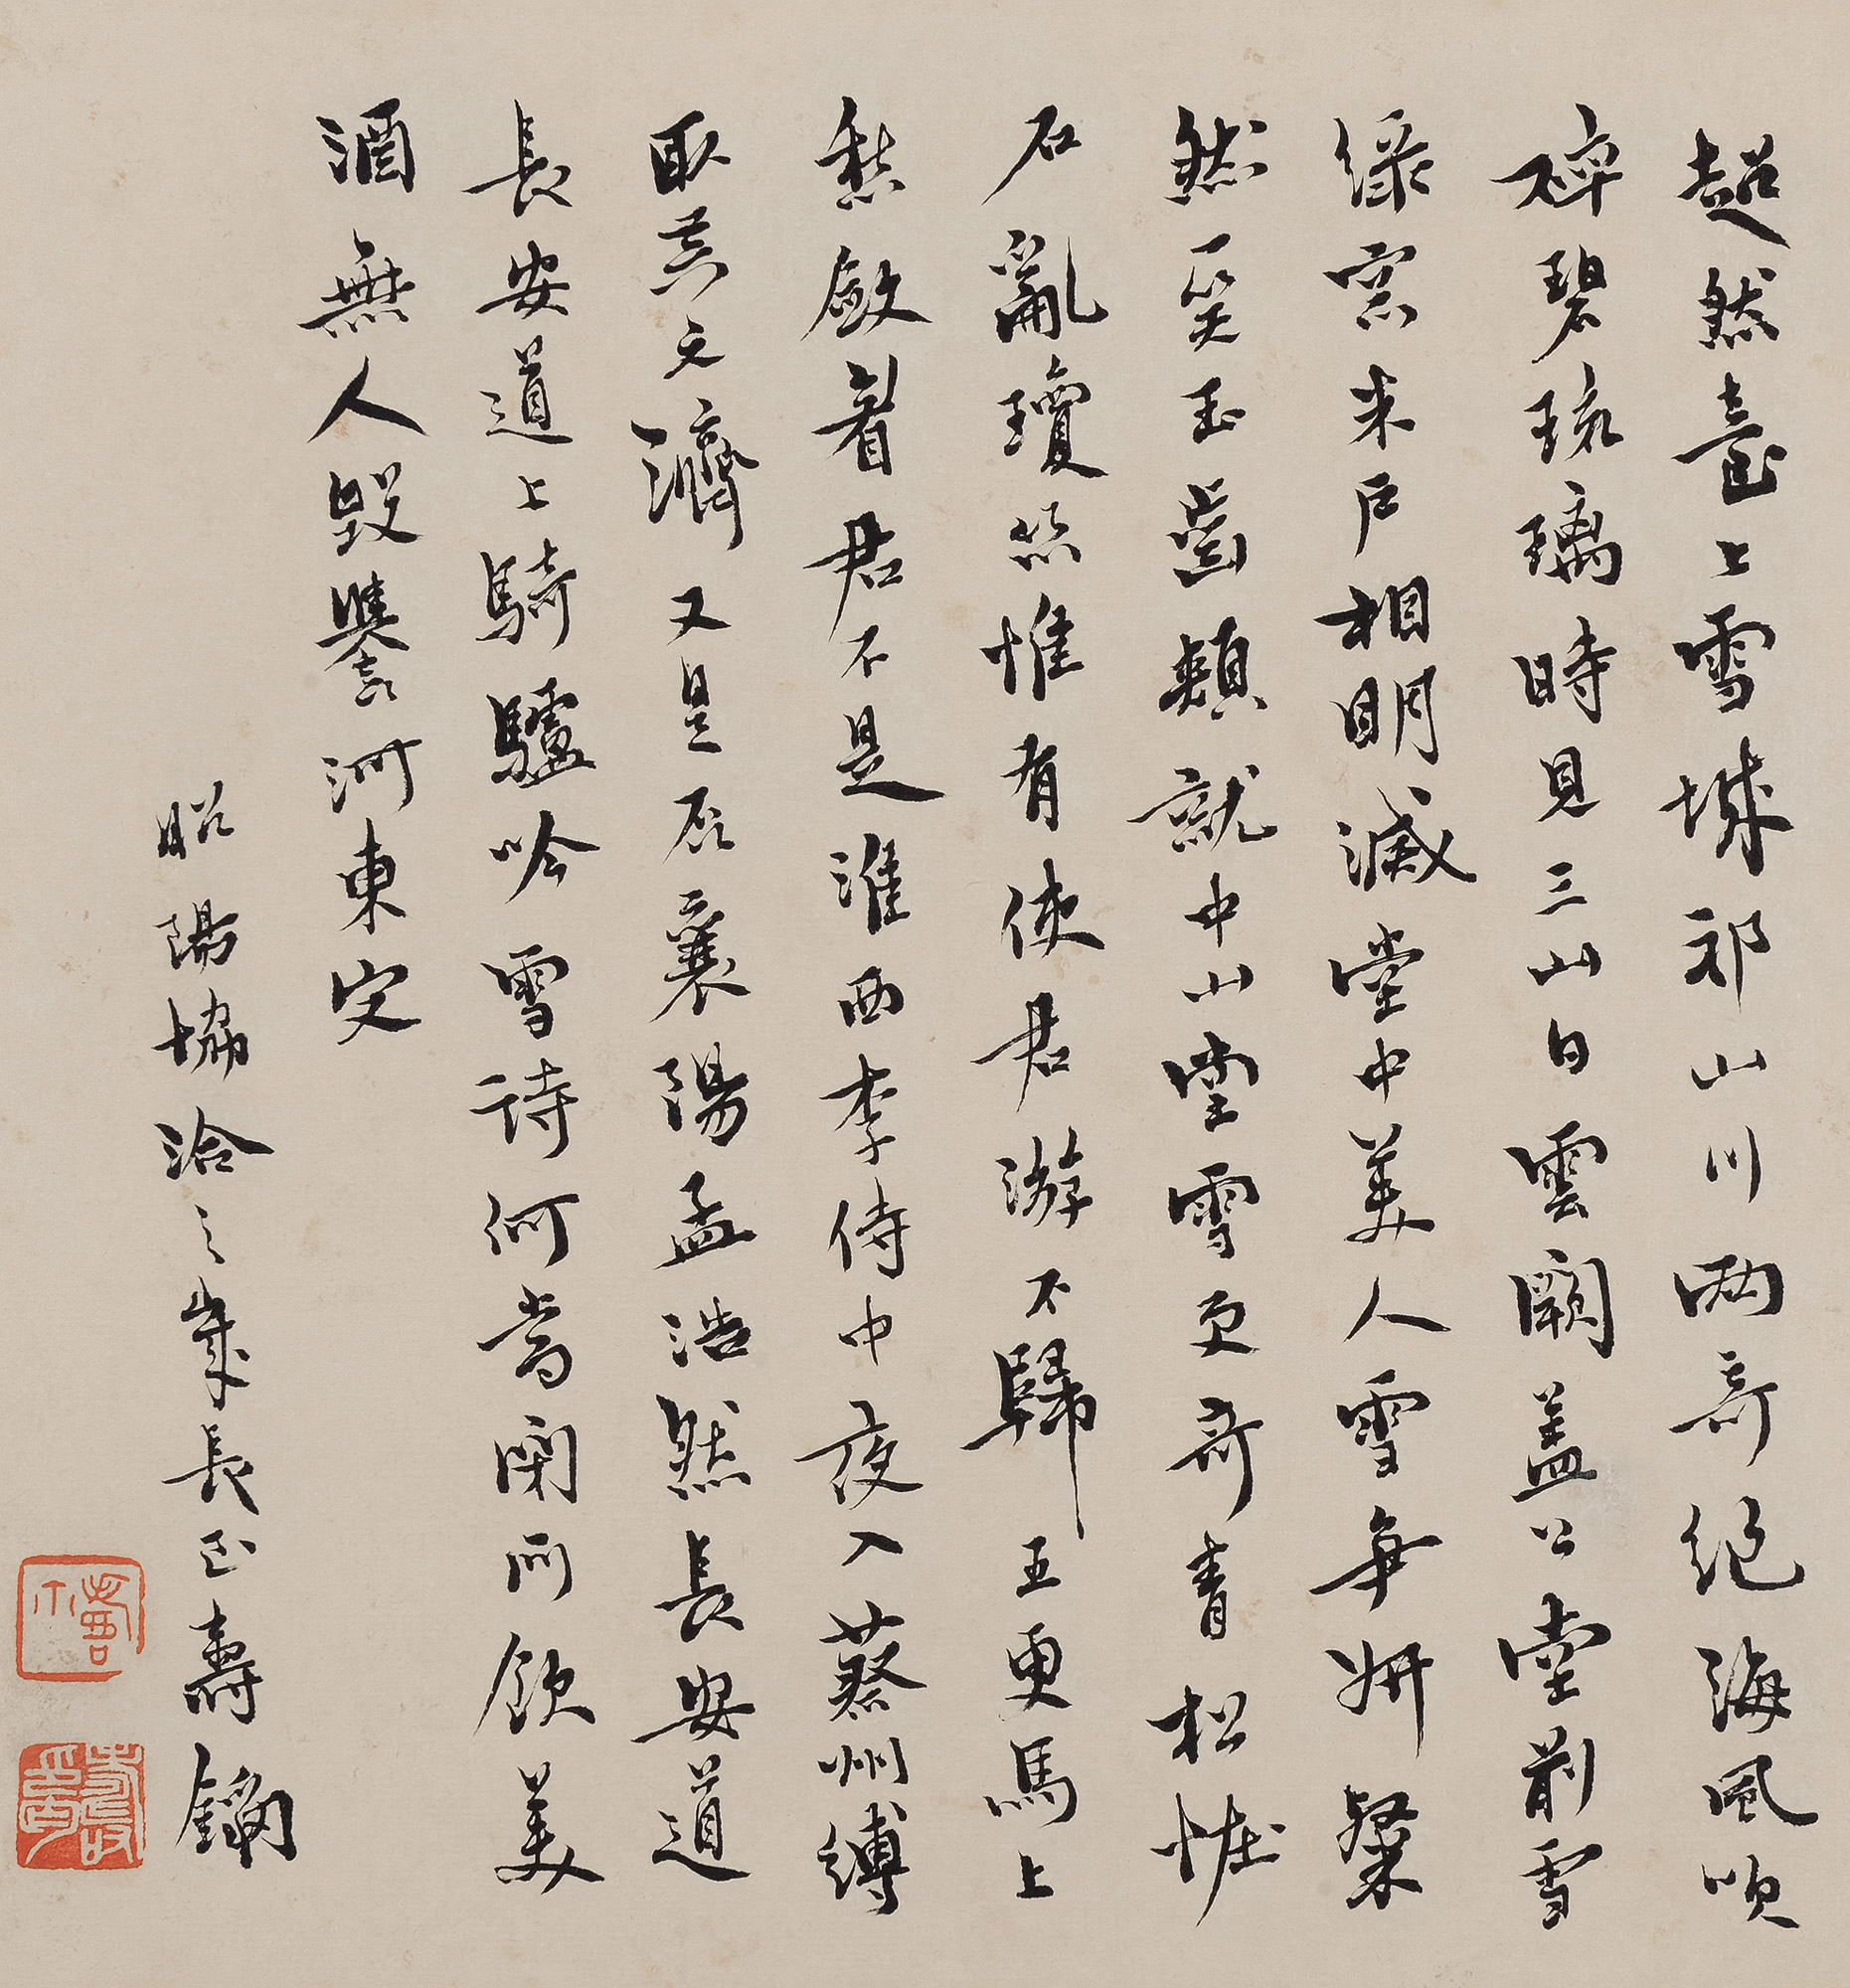 超然臺上雪城郭山川兩奇絕海風吹
碎碧琉璃時見三山白雲闕蓋公堂前雪
綠窓朱戶相明滅堂中美人雪爭妍粲
然一笑玉齒頰就中山堂雪更奇青松怪
石亂瓊絲惟有使君游不歸五更馬上
愁斂眉君不是淮西李侍中夜入蔡州縛
取吳元濟又是否襄陽孟浩然長安道
長安道上騎驢吟雪詩何當閉門飲美
酒無人毀譽河東守
昭陽協洽之歲長至壽鏞